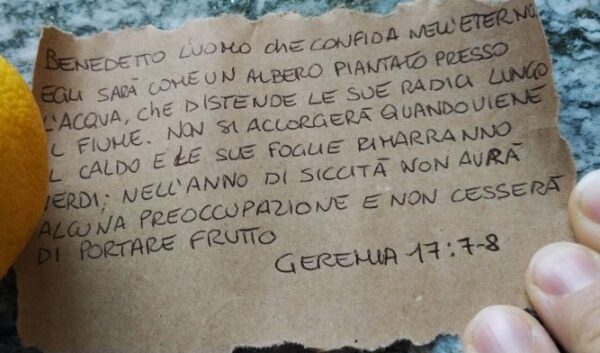 BENEDETTO L'UOMO CHE CONFIDA NELL'ETERNO,
EGLI SARÀ COME UN ALBERO PIANTATO PRESSO
L'ACQUA, CHE DISTENDE LE SUE RADICI LUNGO
IL FIUME. NON SI ACCORGERÀ QUANDO VIENE
IL CALDO E LE SUE FOGLIE RIMARRANNO
VERDI; NELL'ANNO DI SICCITÀ NON AVRÀ
ALCUNA PREOCCUPAZIONE E NON CESSERÀ
DI PORTARE FRUTTO
GEREMIA 17:7-8